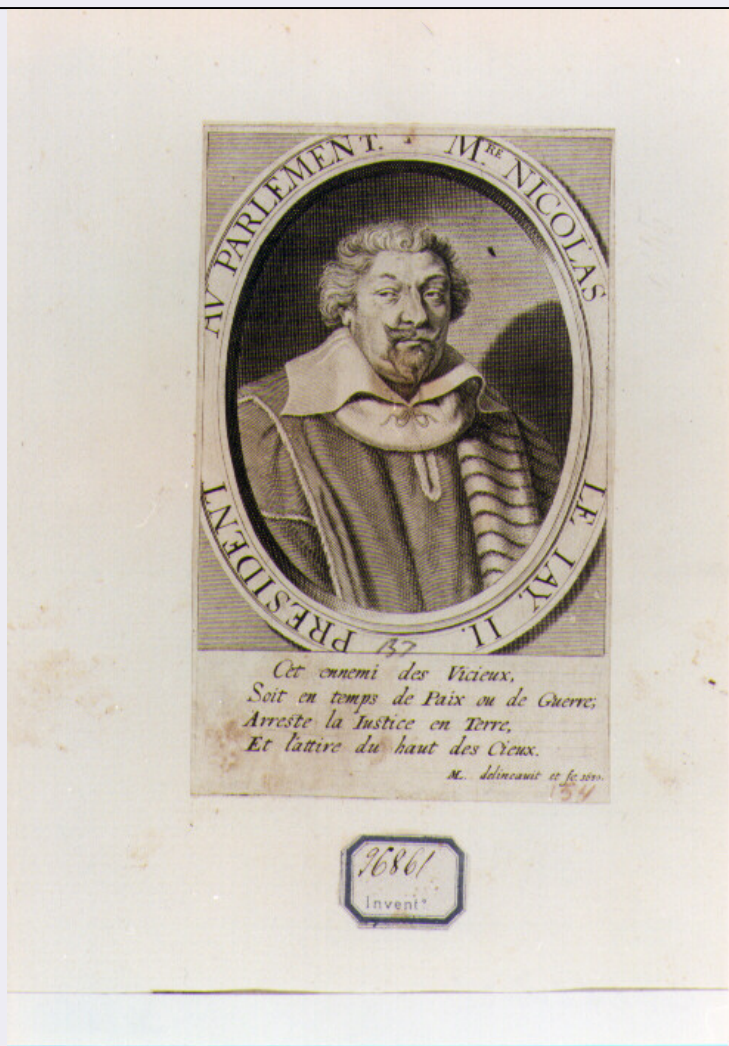 Mʳᴱ NICOLAS LE IAY. II. PRESIDENT AV PARLEMENT.
137
Cet ennemi des Vicieux,
Soit en temps de Paix ou de Guerre;
Arreste la Iustice en Terre,
Et l'attire du haut des Cieux.
M. delineauit et fe.
134
96861
Inventº